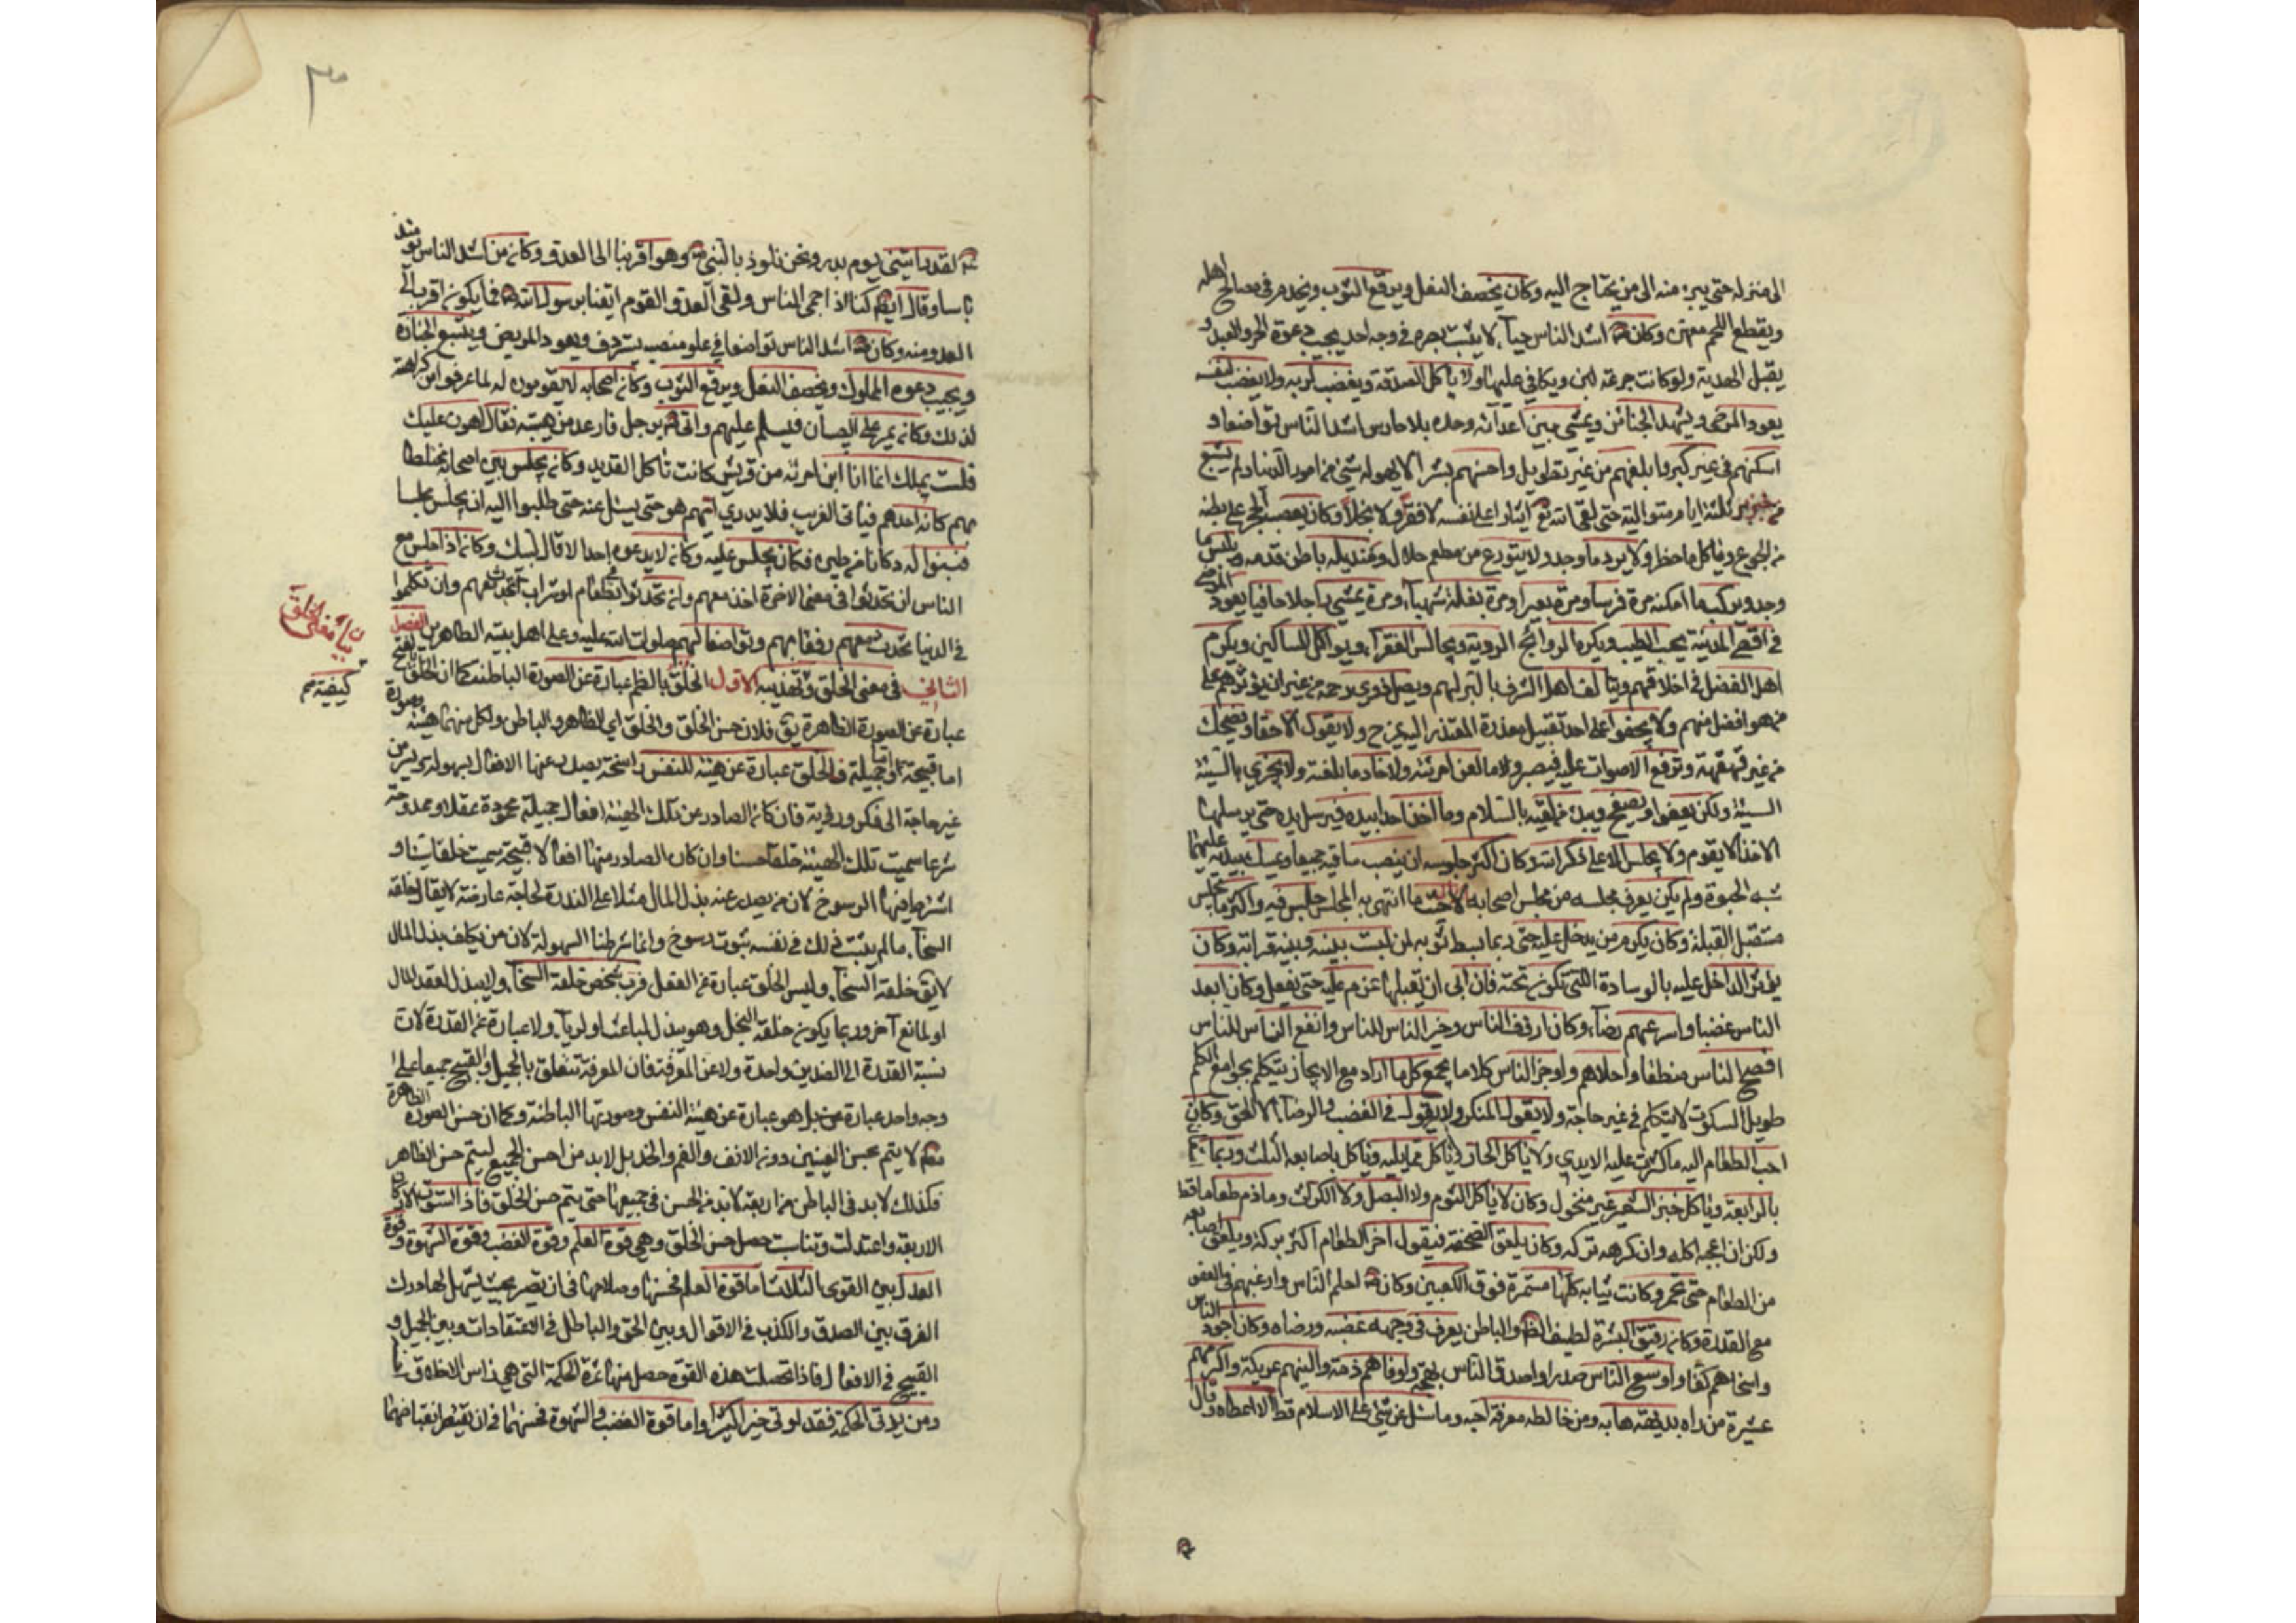 الى منزله حتى يبرء منه الى من يحتاج اليه وكان يخصف النعل ويرقع الثوب ويخدم في مصالح اهله
ويقطع اللحم معهن وكان اشد الناس حياء لا يثبت بصره في وجه احد يجيب دعوة الحر والعبد و
يقبل الهدية ولو كانت جرعة لبن ويكافي عليها ولا ياكل الصدقة ويغضب لربه ولا يغضب لنفسه
يعود المرضى ويشهد الجنائز ويمشي بين اعدائه وحده بلا حارس اشد الناس تواضعا و
اسكنهم في غير كبر وابلغهم من غير تطويل واحسنهم بشرا لا يهوله شيء من امور الدنيا ولم يشبع
من خبز بر ثلثة ايام متوالية حتى لقى الله تع ايثارا على نفسه لا فقرا ولا بخلا وكان يعصب الحجر على بطنه
من الجوع وياكل ما حضر ولا يرد ما وجد ولا يتورع من مطعم حلال ومنديله باطن قدمه يلبس ما
وجد ويركب ما امكنه مرة فرسا ومرة بعيرا ومرة بغلة شهباء ومرة يمشي راجلا حافيا يعود المرضى
في اقصى المدينة يحب الطيب ويكره الروائح الردية ويجالس الفقراء ويواكل المساكين ويكرم
اهل الفضل في اخلاقهم ويتالف اهل الشرف بالبر لهم ويصل ذوي رحمه من غير ان يؤثرهم على
من هو افضل منهم ولا يجفوا على احد يقبل معذرة المعتذر اليه يمزح ولا يقول الا حقا ويضحك
من غير قهقهة وترفع الاصوات عليه فيصبر ولا لعن امرئة ولا خادما بلعنة ولا يجزي بالسيئة
السيئة ولكن يعفوا ويصفح ويبدء من لقيه بالسلام وما اخذ احد بيده فيرسل يده حتى يرسلها
الاخذ لا يقوم ولا يجلس الا على ذكر الله وكان اكثر جلوسه ان ينصب ساقيه جميعا ويمسك بيديه عليهما
شبه الحبوة ولم يكن يعرف مجلسه من مجلس اصحابه لانه حيث ما انتهى به المجلس جلس فيه واكثر ما يجلس
مستقبل القبلة وكان يكرم من يدخل عليه حتى ربما بسط ثوبه لمن ليست بينه وبينه قرابة وكان
يؤثر الداخل عليه بالوسادة التي تكون تحته فان ابى ان يقبلها عزم عليه حتى يفعل وكان ابعد
الناس غضبا واسرعهم رضاء وكان ارءف الناس وخير الناس للناس وانفع الناس للناس
افصح الناس منطقا واحلاهم واوجز الناس كلاما يجمع كل ما اراد مع الايجاز يتكلم بجوامع الكلم
طويل السكوت لا يتكلم في غير حاجة ولا يقول المنكر ولا يقول في الغضب والرضاء الا الحق وكان
احب الطعام اليه ما كثرت عليه الايدي ولا ياكل الحار وياكل مما يليه وياكل باصابعه الثلث وربما
بالرابعة وياكل خبز الشعير غير منخول وكان لا ياكل الثوم ولا البصل ولا الكراث وما ذم طعاما قط
ولكن ان اعجبه اكله وان كرهه تركه وكان يلعق الصحفة فيقول اخر الطعام اكثر بركة ويلعق اصابعه
من الطعام حتى تحمر وكانت ثيابه كلها مشمرة فوق الكعبين وكان احلم الناس وارغبهم في العفو
مع القدرة وكان رقيق البشرة لطيف الظ والباطن يعرف في وجهه غضبه ورضاه وكان اجود الناس
واسخاهم كفا واوسع الناس صدرا واصدق الناس لهجة واوفاهم ذمة والينهم عريكة واكرمهم
عشيرة من راه بديهة هابه ومن خالطه معرفة احبه وما سئل عن شيء على الاسلام قط الا اعطاه وقال
لقد رايتني يوم بدر ونحن نلوذ بالنبي وهو اقربنا الى العدو وكان من اشد الناس يومئذ
باسا وقال ايضا كنا اذا احمى الناس ولقى العدو القوم اتقينا برسول الله فما يكون اقرب الى
العدو منه وكان اشد الناس تواضعا في علو منصب يستردف ويعود المريض ويتبع الجنازة
ويجيب دعوة المملوك ويخصف النعل ويرقع الثوب وكان اصحابه لا يقومون له لما عرفوا من كراهته
لذلك وكان يمر على الصبيان فيسلم عليهم واتى برجل فارعد من هيبته فقال هون عليك
فلست بملك انما انا ابن امرئة من قريش كانت تاكل القديد وكان يجلس بين اصحابه مختلطا
بهم كانه احدهم فياتي الغريب فلا يدري ايهم هو حتى يسئل عنه حتى طلبوا اليه ان يجلس مجلسا
فبنوا له دكانا من طين فكان يجلس عليه وكان لا يدعوه احد الا قال لبيك وكان اذا جلس مع
الناس ان تحدثوا في معنى الاخرة اخذ معهم وان تحدثوا في طعام او شراب تحدث معهم وان تكلموا
في الدنيا تحدث معهم رفقا بهم وتواضعا لهم صلوات الله عليه وعلى اهل بيته الطاهرين الفصل
الثاني في معنى الخلق وتهذيبه الاول الخلق بالضم عبارة عن الصورة الباطنة كما ان الخلق بالفتح
عبارة عن الصورة الظاهرة يق فلان حسن الخلق والخلق اي الظاهر والباطن ولكل منهما هيئة وصورة
اما قبيحة او جميلة والخلق عبارة عن هيئة للنفس راسخة يصدر عنها الافعال بسهولة ويسر من
غير حاجة الى فكر وروية فان كان الصادر عن تلك الهيئة افعال جميلة محمودة عقلا وممدوحة
شرعا سميت تلك الهيئة خلقا حسنا وان كان الصادر منها افعالا قبيحة سميت خلقا سيئا و
اشترط فيها الرسوخ لان من يصدر عنه بذل المال مثلا على الندرة لحاجة عارضة لا يقال خلقه
السخاء ما لم يثبت ذلك في نفسه ثبوت رسوخ وانما شرطنا السهولة لان من تكلف بذل المال
لا يق خلقه السخاء وليس الخلق عبارة عن الفعل فرب شخص خلقه السخاء ولا يبذل لفقد المال
او لمانع آخر وربما يكون خلقه البخل وهو يبذل لباعث او لرياء ولا عبارة عن القدرة لان
نسبة القدرة الى الضدين واحدة ولا عن المعرفة فان المعرفة تتعلق بالجميل والقبيح جميعا على
وجه واحد عبارة عن بل هو عبارة عن هيئة النفس وصورتها الباطنة وكما ان حسن الصورة الظاهرة
مط لا يتم بحسن العينين دون الانف والفم والخد بل لا بد من احسن الجميع ليتم حسن الظاهر
فكذلك لا بد في الباطن من اربعة لا بد من الحسن في جميعها حتى يتم حسن الخلق فاذا استوت الاركان
الاربعة واعتدلت وتناسبت حصل حسن الخلق وهي قوة العلم وقوة الغضب وقوة الشهوة وقوة
العدل بين القوى الثلاث اما قوة العلم فحسنها وصلاحها في ان يصير بحيث يسهل لها درك
الفرق بين الصدق والكذب في الاقوال وبين الحق والباطل في الاعتقادات وبين الجميل و
القبيح في الافعال فاذا تحصلت هذه القوة حصل منها ثمرة الحكمة التي هي راس الاخلاق
ومن يؤتى الحكمة فقد اوتي خيرا كثيرا واما قوة الغضب والشهوة فحسنهما في ان يقتصر انقباضهما
بيان معنى الخلق
كيفيته